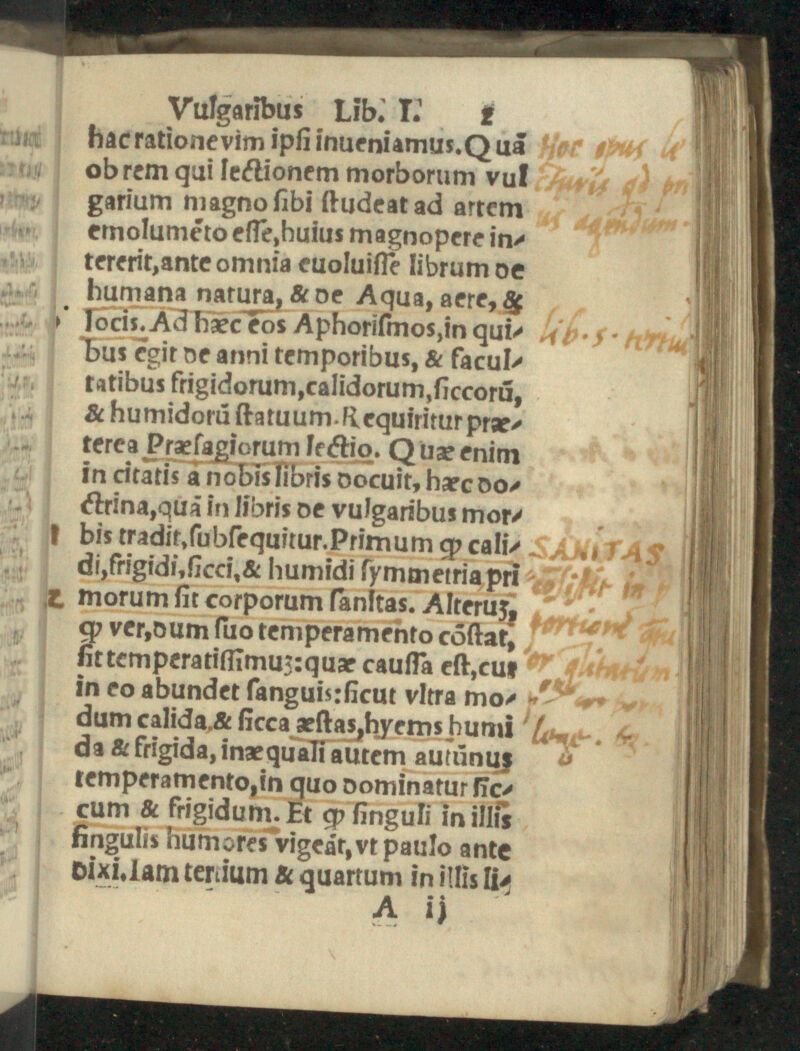 Vulgaribus Lib. I. 2
hac ratione vim ipſi inueniamus. Quā
ob rem qui lectionem morborum vul
garium magno ſibi ſtudeat ad artem
emolumēto eſſe, huius magnopere in⸗
tererit, ante omnia euoluiſſe librum de
humana natura, & de Aqua, aere, &
locis. Ad hæc eos Aphoriſmos, in qui⸗
bus egit de anni temporibus, & facul⸗
tatibus frigidorum, calidorum, ſiccorū,
& humidorū ſtatuum. Requiritur præ⸗
terea Præſagiorum lectio. Quæ enim
in citatis a nobis libris docuit, hæc do⸗
ctrina, quā in libris de vulgaribus mor⸗
1 bis tradit, ſubſequitur. Primum ꝙ cali⸗
di, frigidi, ſicci, & humidi ſymmetria pri
2 morum ſit corporum ſanitas. Alteruꝫ,
ꝙ ver, dum ſuo temperamento cōſtat,
ſit temperatiſſimuꝫ: quæ cauſſa eſt, cur
in eo abundet ſanguis: ſicut vltra mo⸗
dum calida, & ſicca æſtas, hyems humi
da & frigida, inæquali autem autūnus
temperamento, in quo dominatur ſic⸗
cum & frigidum. Et ꝙ ſinguli in illis
ſingulis humores vigeāt, vt paulo ante
dixi. Iam tertium & quartum in illis li⸗
A ij
Hoc opus
lib. 5.
SANITAS